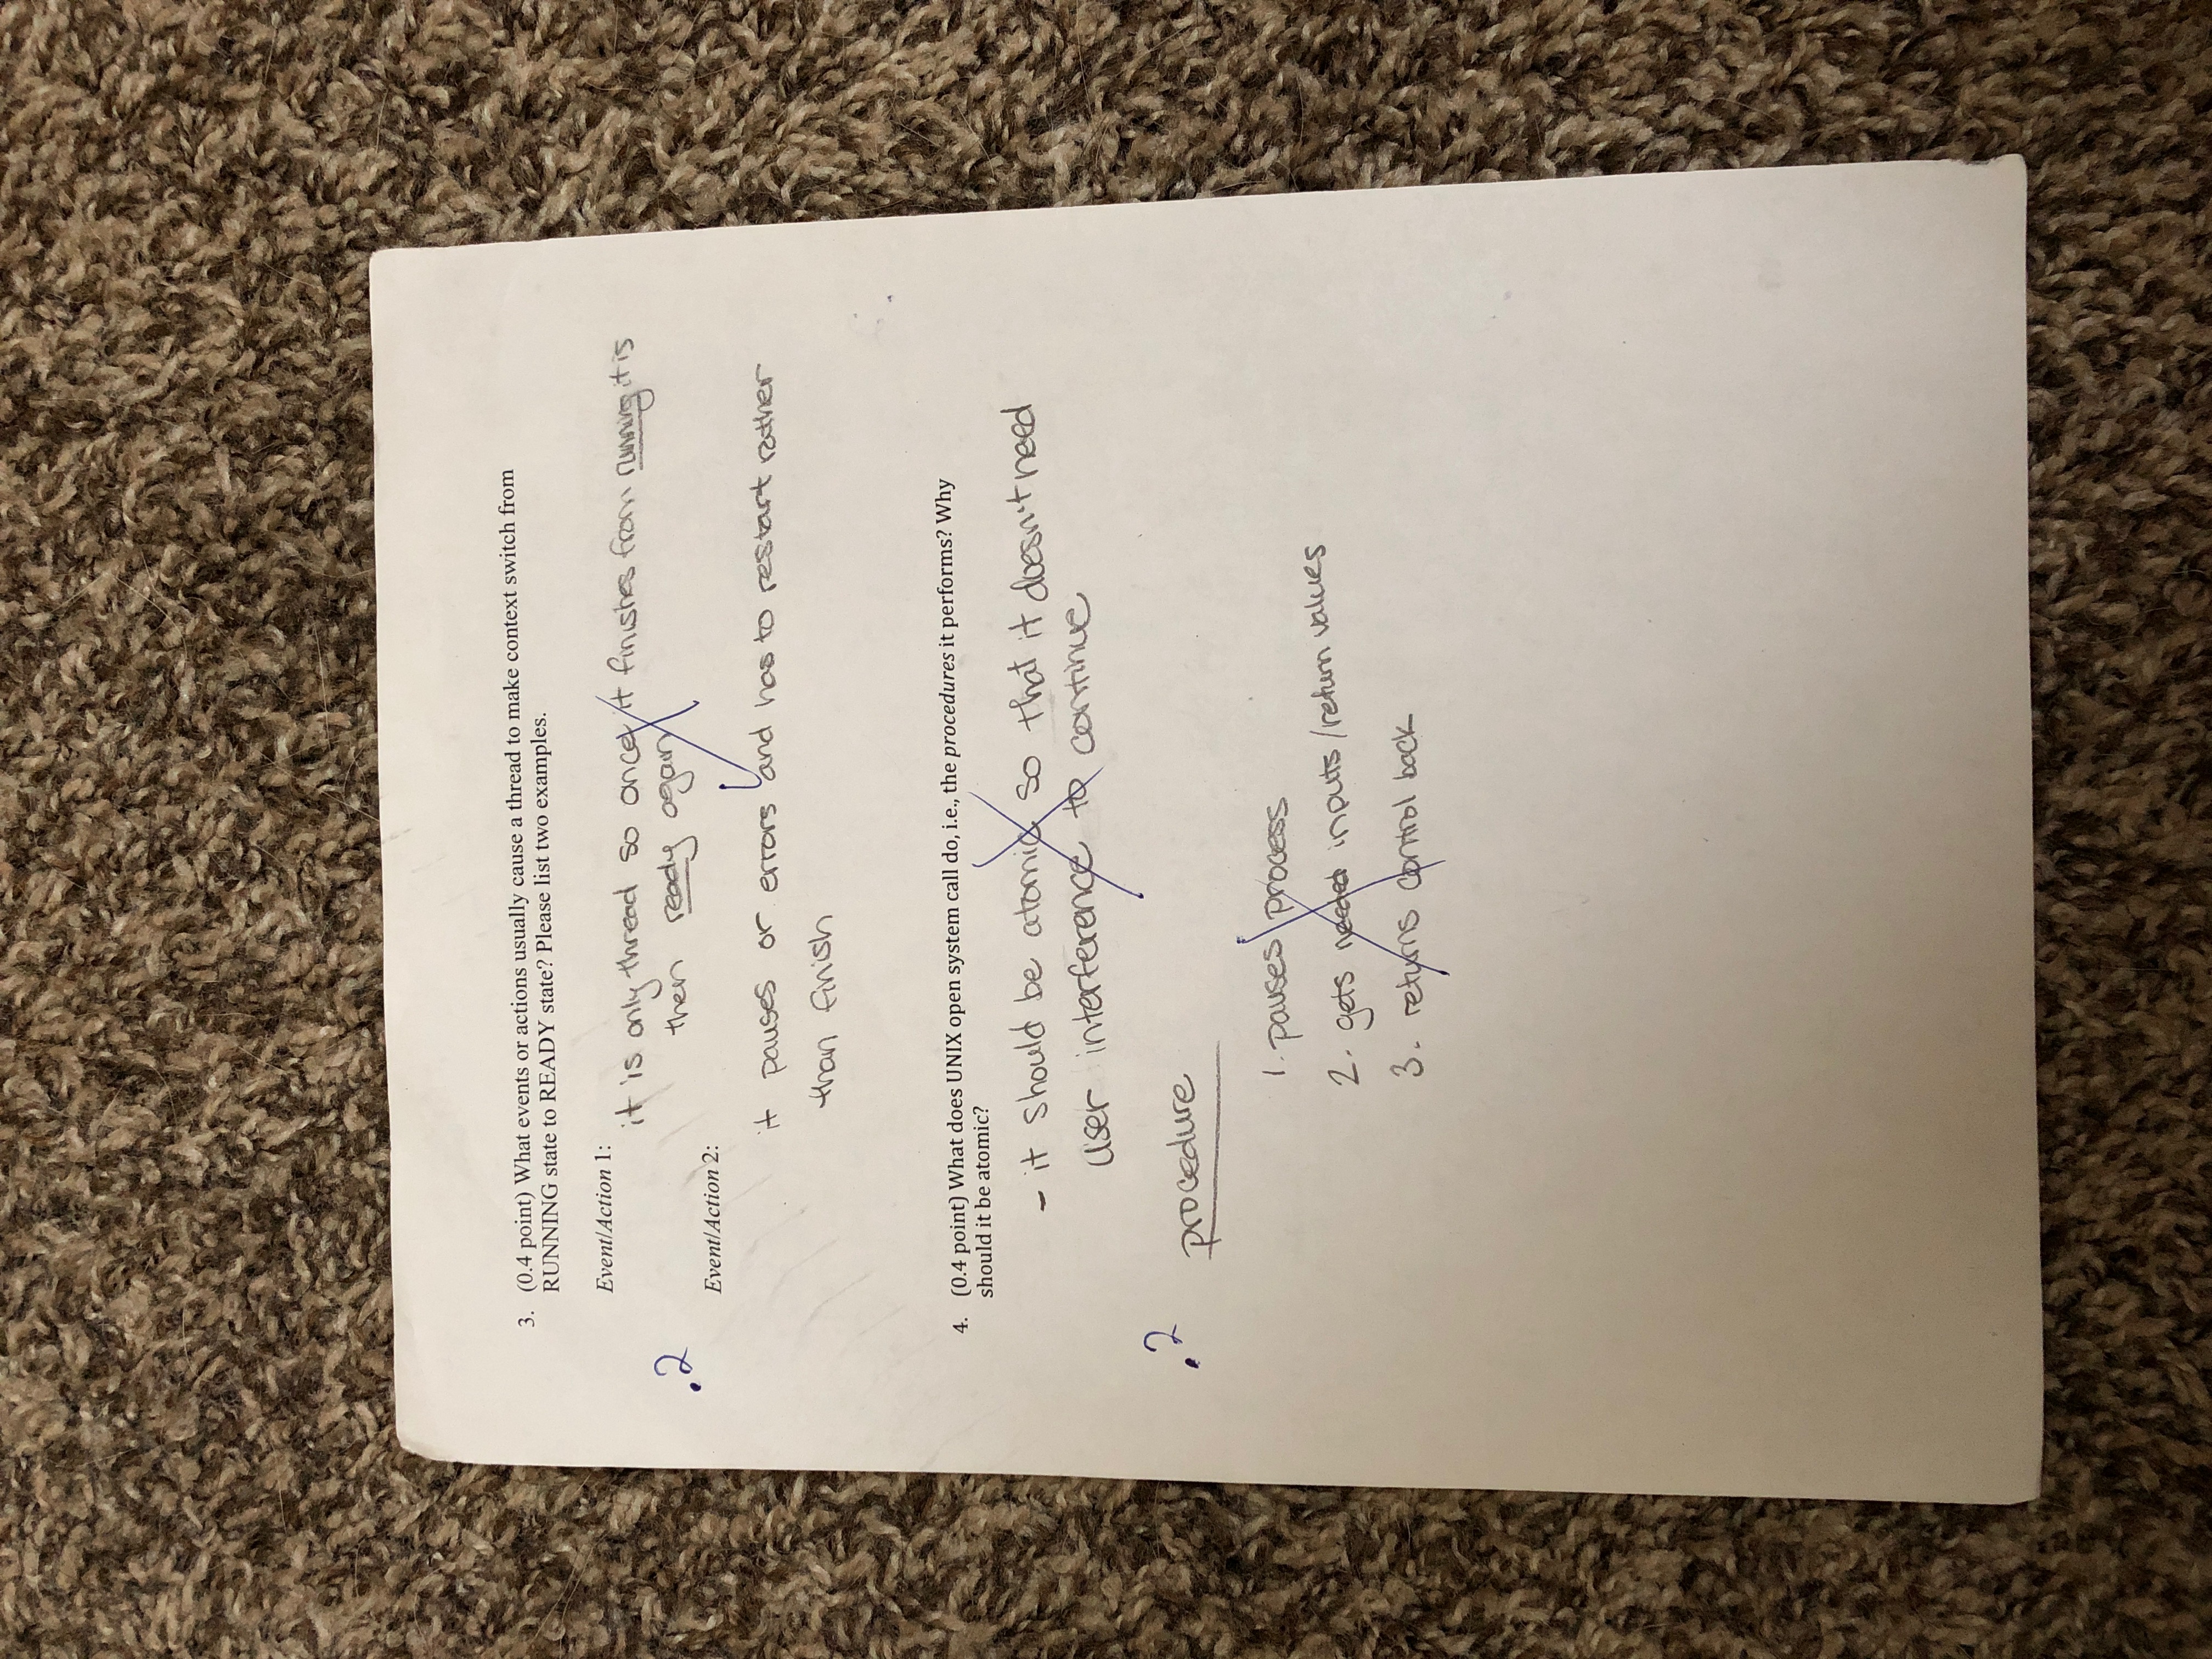 3. (0.4 point) What events or actions usually cause a thread to make context switch from
RUNNING state to READY state? Please list two examples.
Event/Action 1:
it is only thread so once it finishes from running it is
then ready again
.2
Event/Action 2:
it pauses or errors and has to restart rather
than finish
4. (0.4 point) What does UNIX open system call do, i.e., the procedures it performs? Why
should it be atomic?
- it should be atomic so that it doesn't need
user interference to continue
.2
procedure
1. pauses process
2. gets needed inputs/return values
3. returns control back